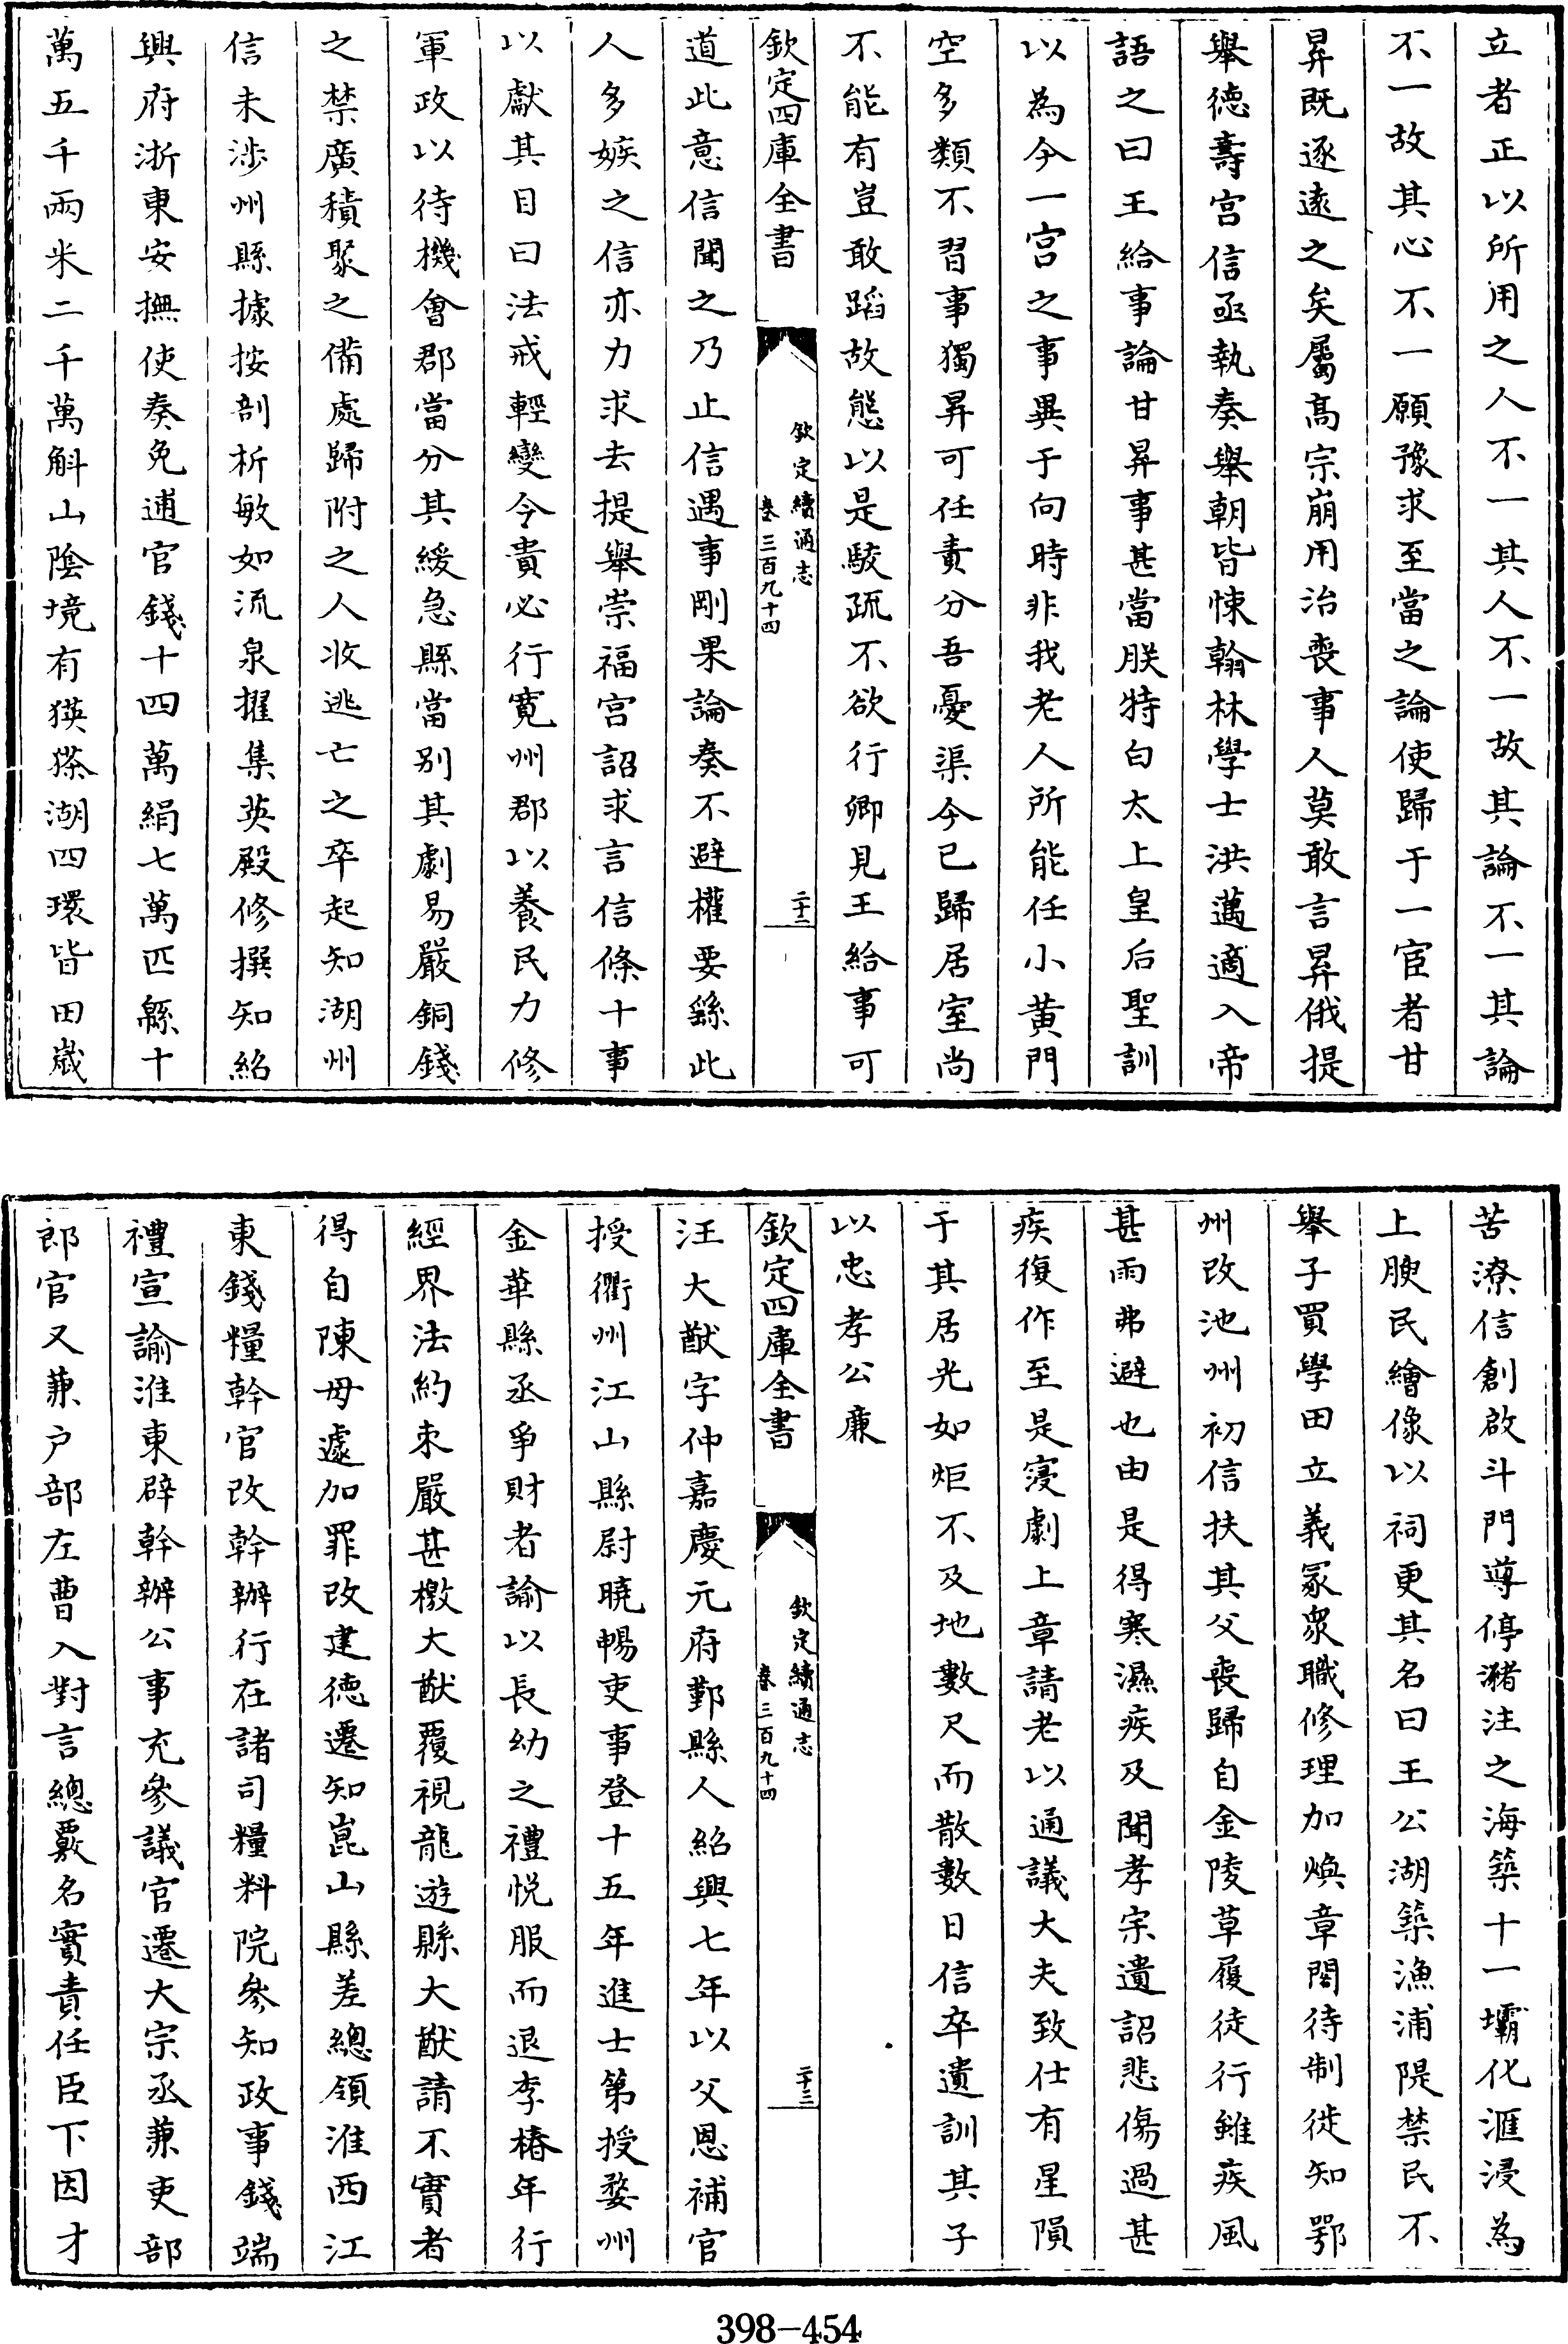 立者正以所用之人不一其人不一故其論不一其論
不一故其心不一願豫求至當之論使歸于一宦者甘
昇既逐遠之矣屬高宗崩用治喪事人莫敢言昇俄提
舉德壽宮信亟執奏舉朝皆悚翰林學士洪邁適入帝
語之曰王給事論甘昇事甚當朕特白太上皇后聖訓
以為今一宮之事異于向時非我老人所能任小黃門
空多類不習事獨昇可任責分吾憂渠今已歸居室尚
不能有豈敢蹈故態以是駮疏不欲行卿見王給事可
欽定四庫全書
欽定續通志
卷三百九十四
二十二
道此意信聞之乃止信遇事剛果論奏不避權要繇此
人多嫉之信亦力求去提舉崇福宮詔求言信條十事
以獻其目曰法戒輕變令貴必行寬州郡以養民力修
軍政以待機會郡當分其緩急縣當别其劇易嚴銅錢
之禁廣積聚之備處歸附之人收逃亡之卒起知湖州
信未涉州縣據按剖析敏如流泉擢集英殿修撰知紹
興府浙東安撫使奏免逋官錢十四萬絹七萬匹緜十
萬五千兩米二千萬斛山陰境有㺎𤠔湖四環皆田歲
苦潦信創啟斗門導停瀦注之海築十一壩化滙浸為
上腴民繪像以祠更其名曰王公湖築漁浦隄禁民不
舉子買學田立義冢衆職修理加煥章閣待制徙知鄂
州改池州初信扶其父喪歸自金陵草履徒行雖疾風
甚雨弗避也由是得寒濕疾及聞孝宗遺詔悲傷過甚
疾復作至是寖劇上章請老以通議大夫致仕有星隕
于其居光如炬不及地數尺而散數日信卒遺訓其子
以忠孝公廉
欽定四庫全書
欽定續通志
卷三百九十四
二十三
汪大猷字仲嘉慶元府鄞縣人紹興七年以父恩補官
授衢州江山縣尉曉暢吏事登十五年進士第授婺州
金華縣丞爭財者諭以長幼之禮悅服而退李椿年行
經界法約束嚴甚檄大猷覆視龍遊縣大猷請不實者
得自陳毋遽加罪改建德遷知崑山縣差總領淮西江
東錢糧幹官改幹辦行在諸司糧料院參知政事錢端
禮宣諭淮東辟幹辦公事充參議官遷大宗丞兼吏部
郎官又兼户部左曹入對言總覈名實責任臣下因才
398-454